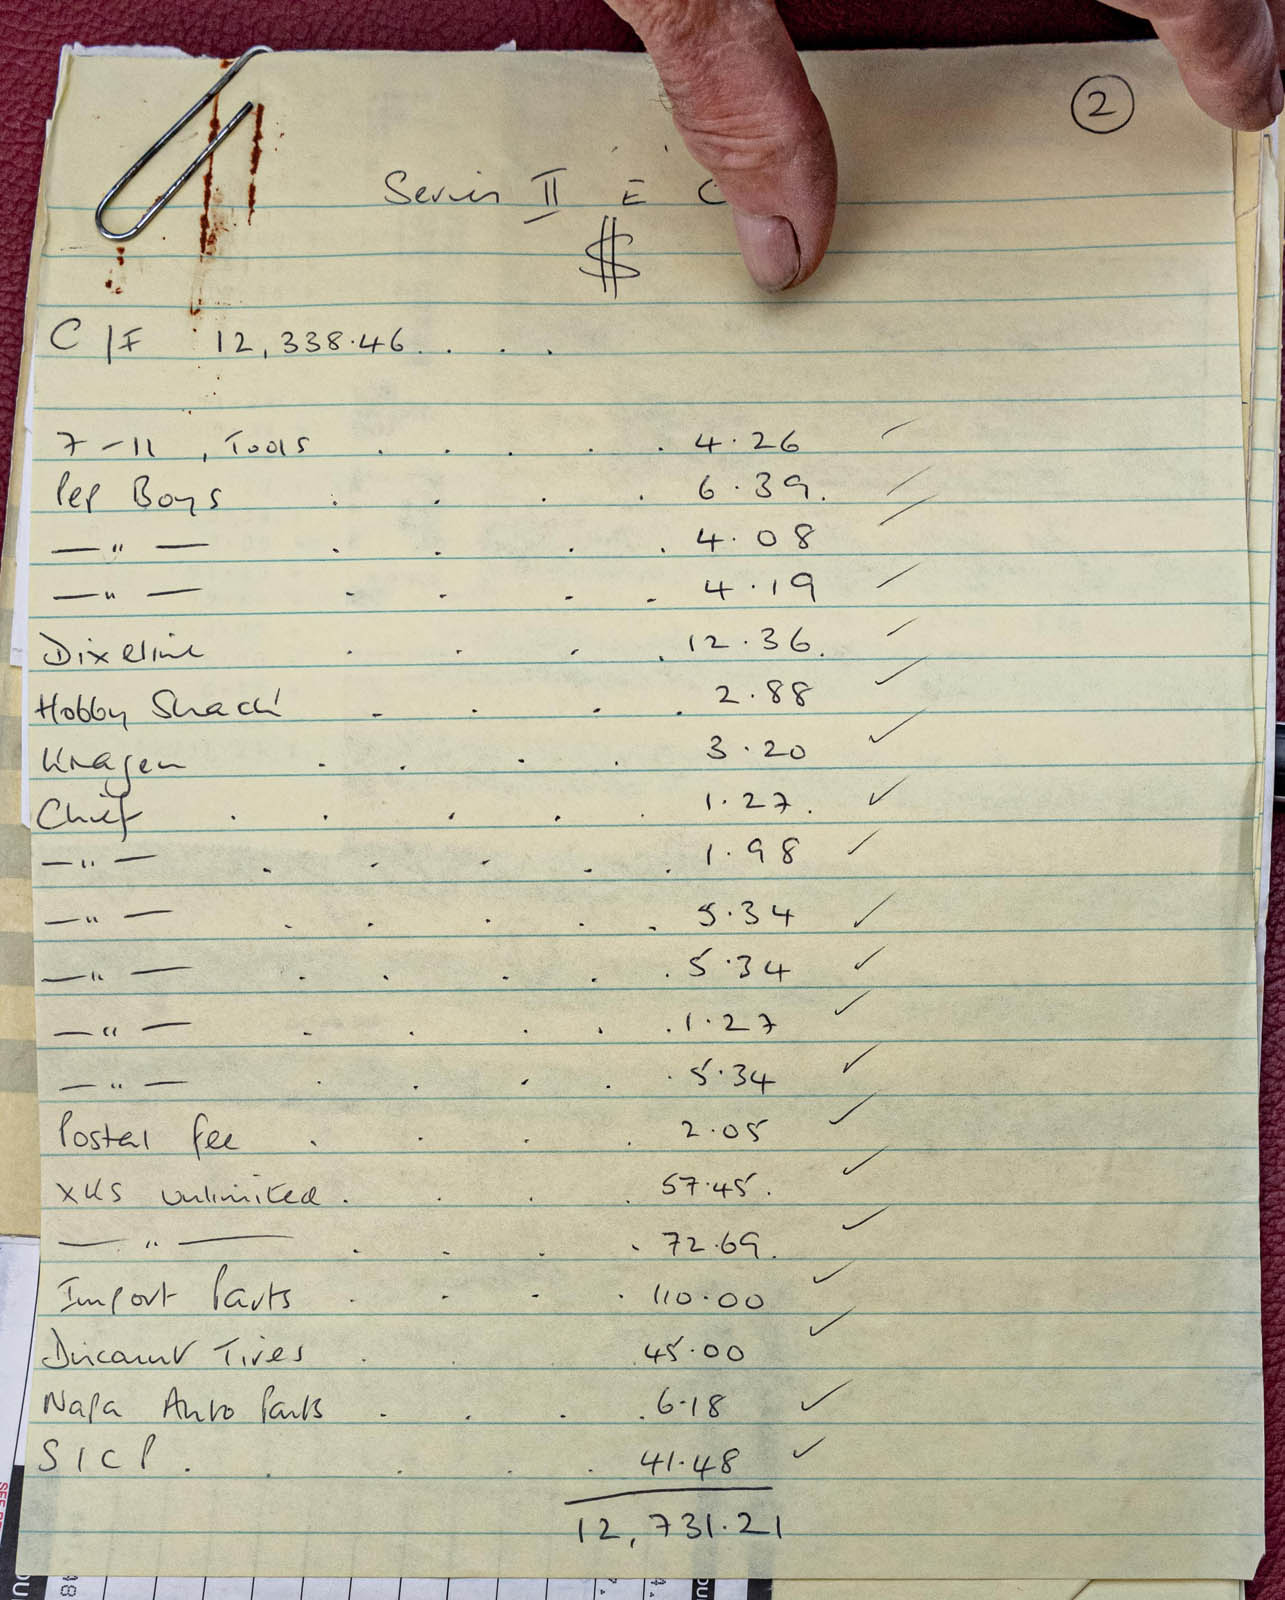 2
Series II E
$
C/F 12,338.46. . . .
7-11, Tools . . . . . 4.26 ✓
Pep Boys . . . . 6.39. ✓
—"— . . . . 4.08 ✓
—"— . . . . 4.19 ✓
Dixieline . . . . 12.36. ✓
Hobby Shack . . . . 2.88 ✓
Kragen . . . . 3.20 ✓
Chief . . . . . 1.27. ✓
—"— . . . . . 1.98 ✓
—"— . . . . . 5.34 ✓
—"— . . . . . 5.34 ✓
—"— . . . . . 1.27 ✓
—"— . . . . . 5.34 ✓
Postal fee . . . . 2.05 ✓
XKS Unlimited . . . . 57.45. ✓
—"— . . . . 72.69. ✓
Import Parts . . . . 110.00 ✓
Discount Tires . . . 45.00 ✓
Napa Auto Parts . . . . 6.18 ✓
SICP . . . . . 41.48 ✓
12,731.21